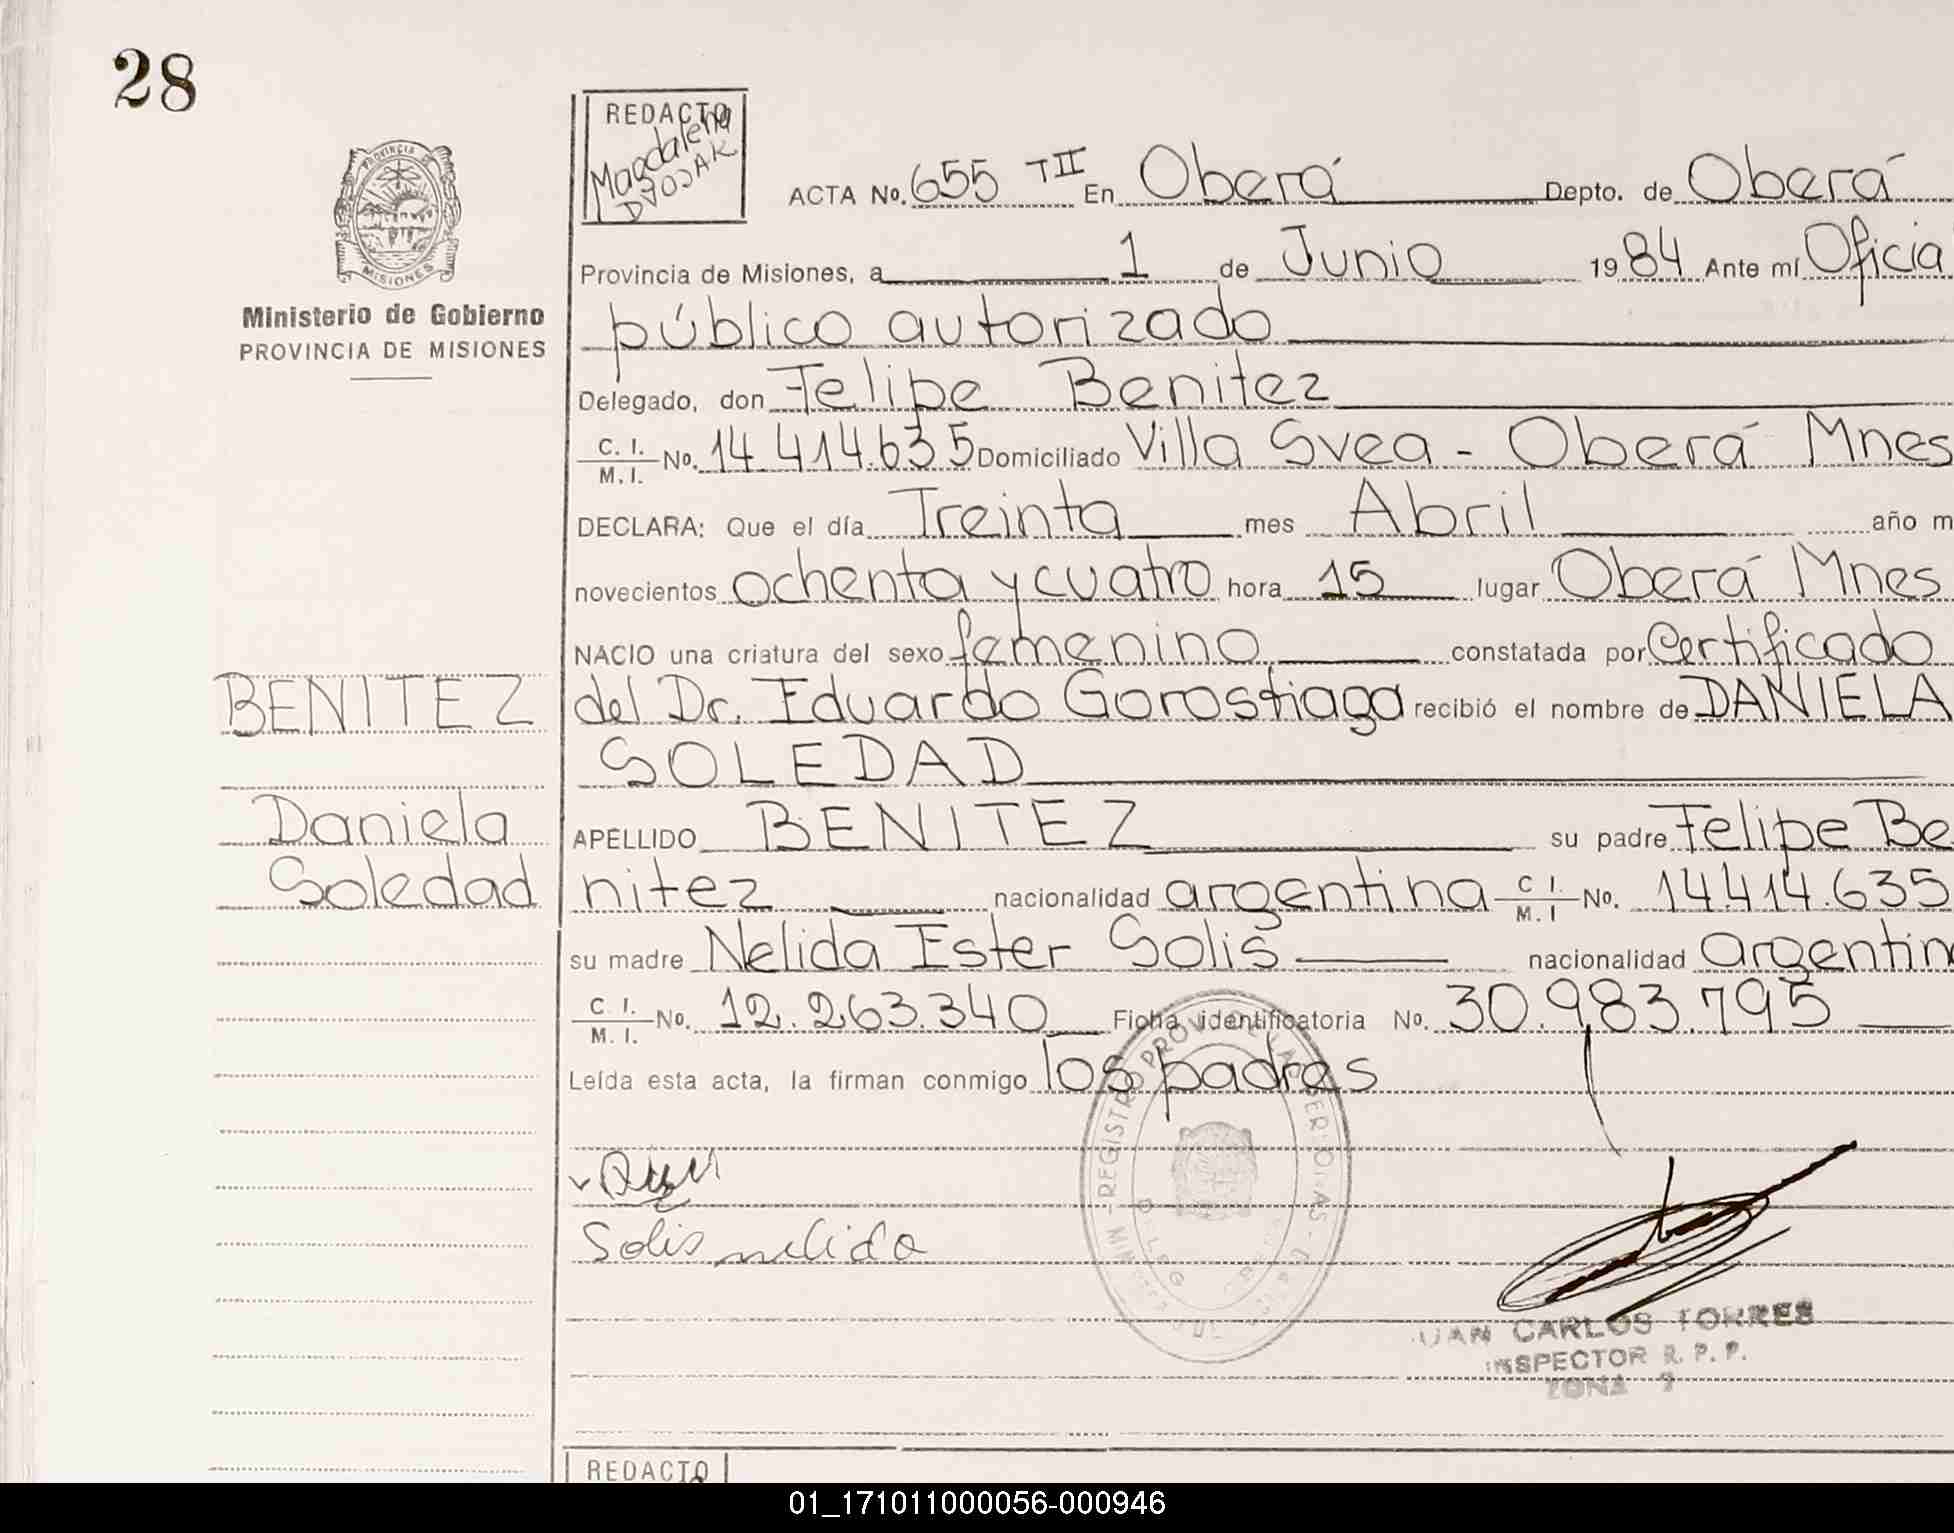 28
REDACTO
Magdalena
DVOJAK
PROVINCIA DE
MISIONES
Ministerio de Gobierno
PROVINCIA DE MISIONES
ACTA No. 655 TII En Oberá Depto. de Oberá
Provincia de Misiones, a 1 de Junio 1984 Ante mí Oficia
público autorizado
Delegado, don Felipe Benitez
C. I. / M. I. No. 14.414.635 Domiciliado Villa Svea - Oberá Mnes
DECLARA: Que el día Treinta mes Abril año m
novecientos ochenta y cuatro hora 15 lugar Oberá Mnes
NACIO una criatura del sexo femenino constatada por Certificado
BENITEZ del Dr. Eduardo Gorostiaga recibió el nombre de DANIELA
SOLEDAD
Daniela APELLIDO BENITEZ su padre Felipe Be
Soledad nitez nacionalidad argentina C I. / M. I No. 14.414.635
su madre Nelida Ester Solis nacionalidad argentin
C. I. / M. I. No. 12.263.340 Ficha identificatoria No. 30.983.795
Leída esta acta, la firman conmigo los padres
Solis nelida
JUAN CARLOS TORRES
INSPECTOR R. P. P.
ZONA
REDACTO
01_171011000056-000946